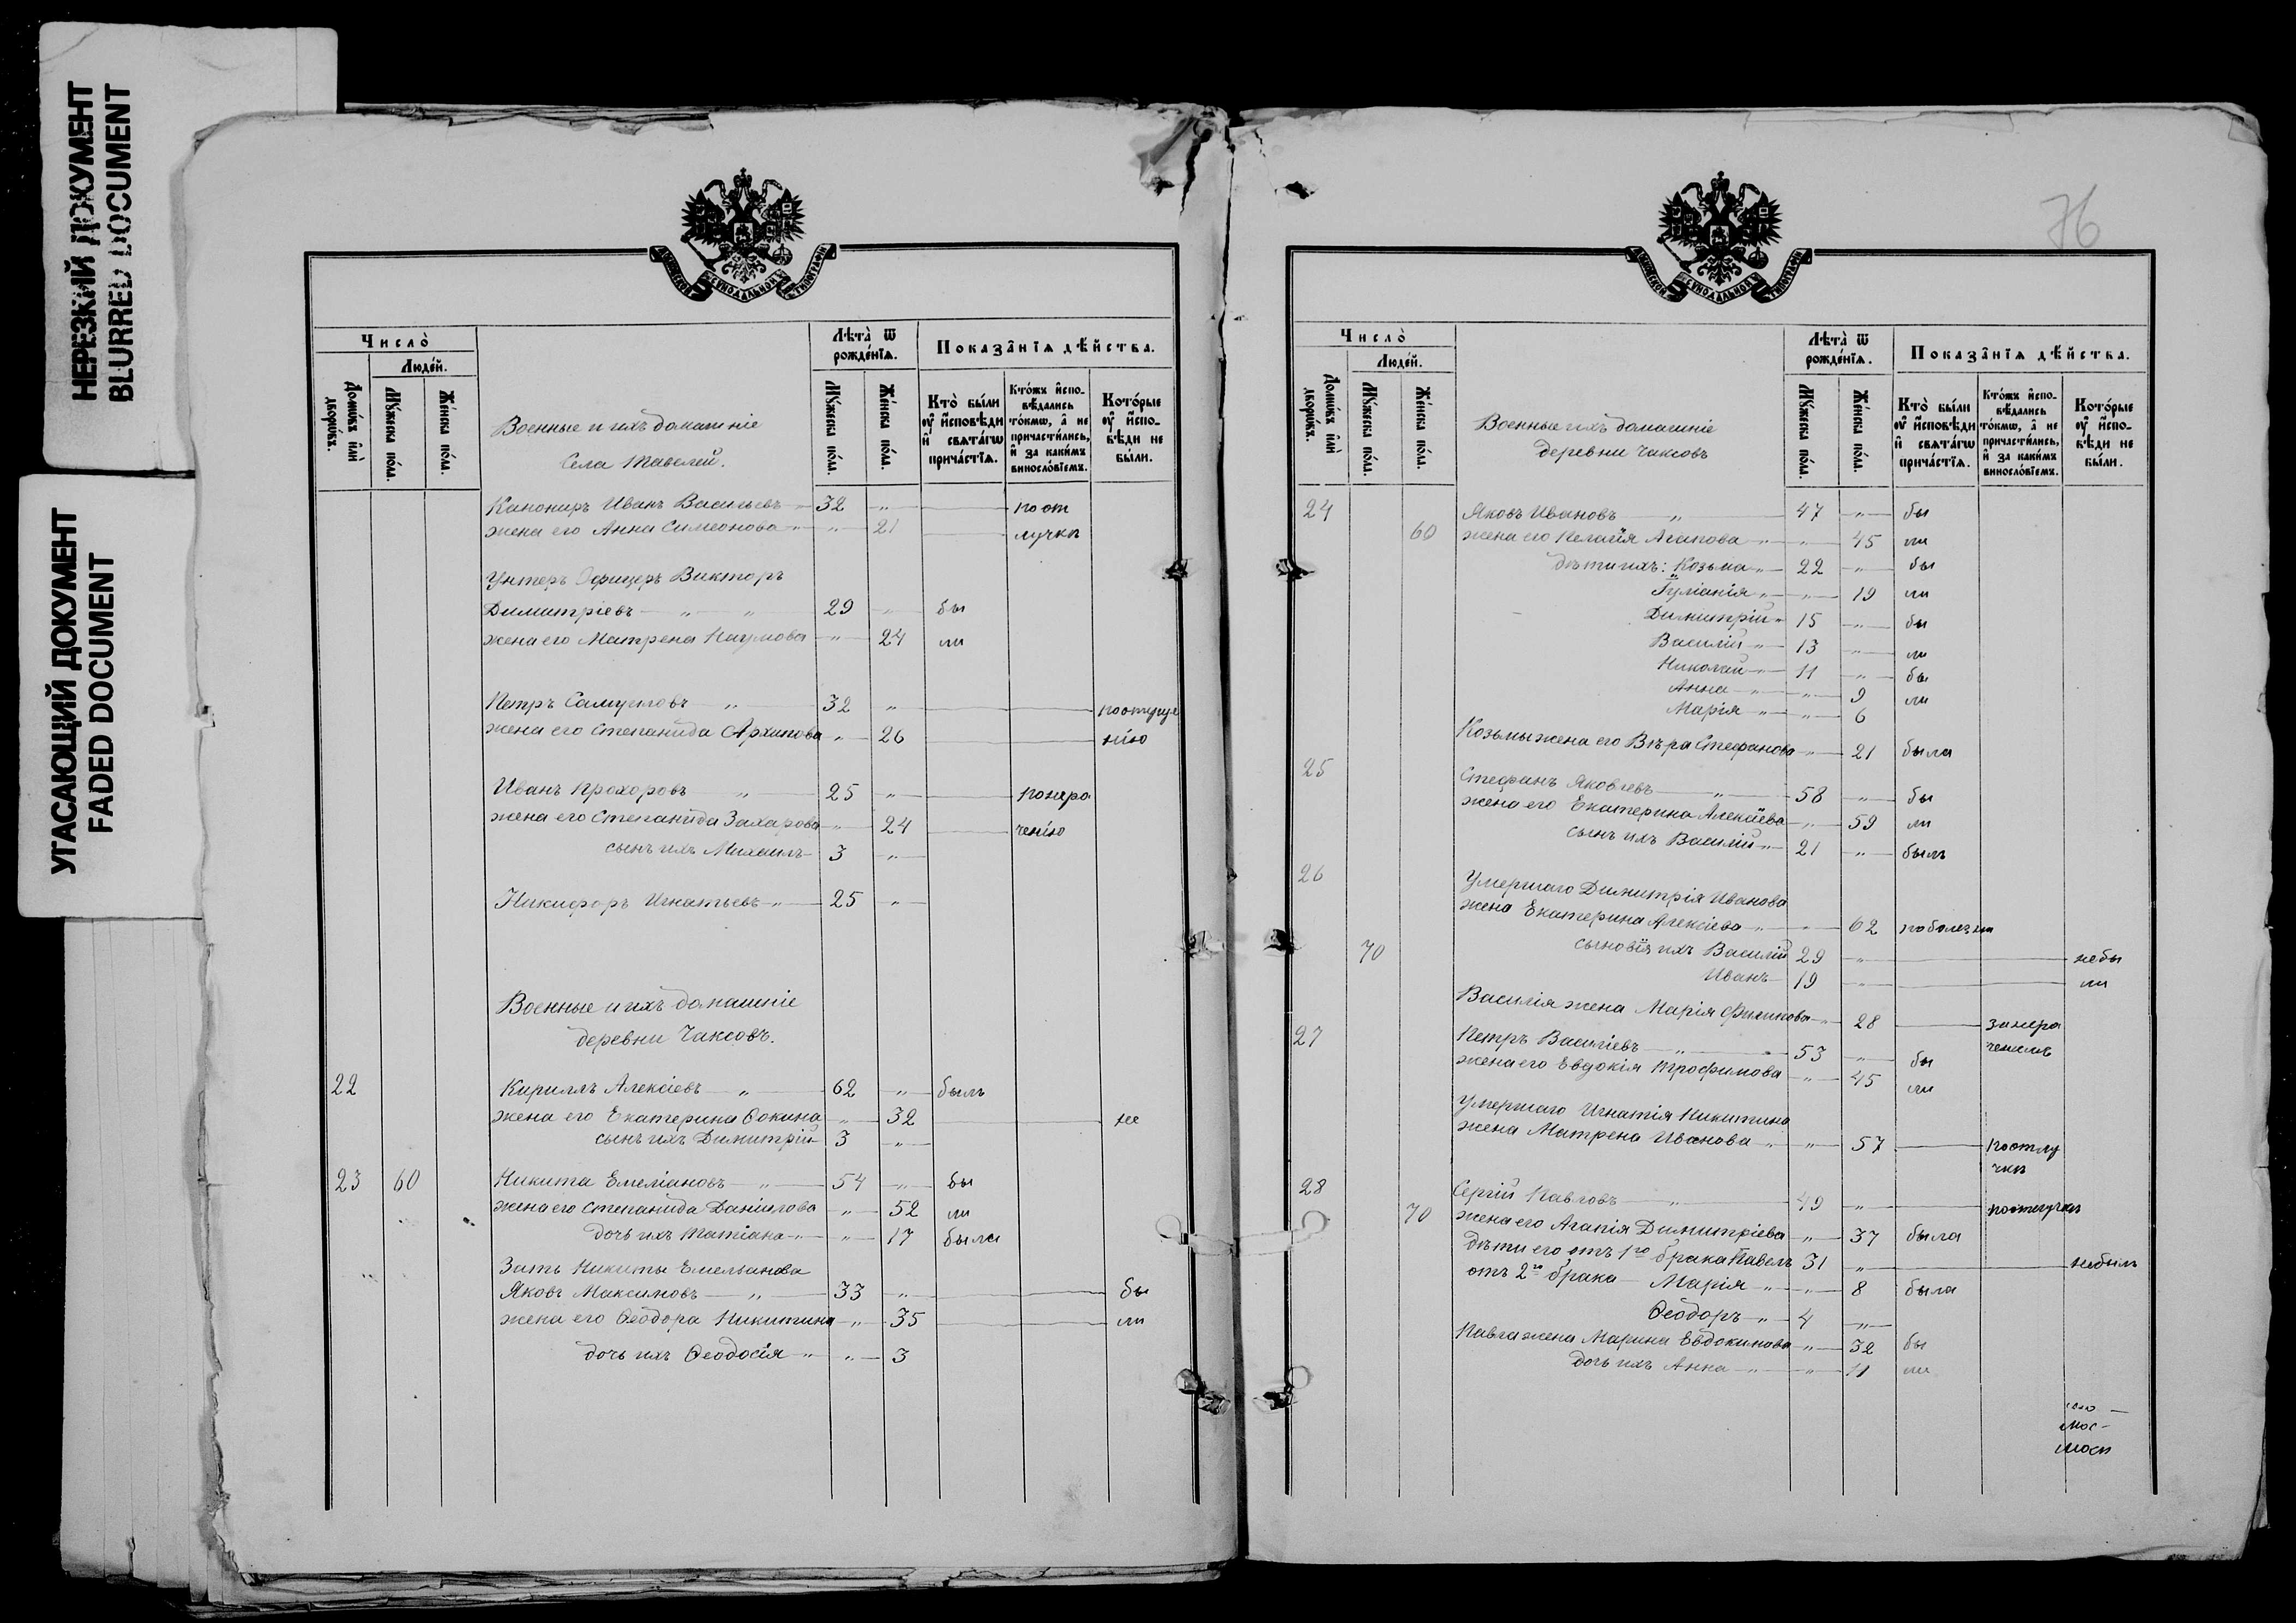 НЕРЕЗКИЙ ДОКУМЕНТ
BLURRED DOCUMENT
УГАСАЮЩИЙ ДОКУМЕНТ
FADED DOCUMENT
Московской Сѵнодальной Типографіи
Число̀
Людей.
Домѡвъ и҆лѝ дворѡвъ.
Мꙋжеска пола.
Женска пола.
Военные и ихъ домашніе
Села Тавелей.
Лѣта̀ ѿ рожденїѧ.
Мꙋжеска пола.
Женска пола.
Показанїѧ дѣйства.
Кто̀ были ᲂу҆ и҆сповѣди и҆ свѧтагѡ причастїѧ.
Ктожъ и҆сповѣдались токмѡ, а҆ не причастились, и҆ за какимъ винословїемъ.
Которые ᲂу҆ и҆сповѣди не были.
Канониръ Иванъ Васильевъ — 32 „ — поот
жена его Анна Симеонова „ „ 21 — лучкѣ
Унтеръ Офицеръ Викторъ
Димитріевъ — „ „ 29 „ бы
жена его Матрена Наумова „ 24 ли
Петръ Самуиловъ „ 32 „
жена его Степанида Архипова „ 26 — нію
Иванъ Прохоровъ „ 25 „ — понера
жена его Степанида Захарова „ 24 — ченію
сынъ ихъ Михаилъ 3 „
Никифоръ Игнатьевъ „ 25 „
Военные и ихъ домашніе
деревни Чаксовъ.
22 Кириллъ Алексіевъ „ 62 „ былъ
жена его Екатерина Фокина „ 32 — не
сынъ ихъ Димитрій 3 „
23 60 Никита Емеліановъ „ 54 „ бы
жена его Степанида Даніилова „ 52 ли
дочь ихъ Татіана „ „ 17 была
Зять Никиты Емельянова
Яковъ Максимовъ „ 33 „ — бы
жена его Ѳеодора Никитина „ 35 — ли
дочь ихъ Ѳеодосія „ „ 3
76
Московской Сѵнодальной Типографіи
Число̀
Людей.
Домѡвъ и҆лѝ дворѡвъ.
Мꙋжеска пола.
Женска пола.
Военные ихъ домашніе
деревни Чаксовъ
Лѣта̀ ѿ рожденїѧ.
Мꙋжеска пола.
Женска пола.
Показанїѧ дѣйства.
Кто̀ были ᲂу҆ и҆сповѣди и҆ свѧтагѡ причастїѧ.
Ктожъ и҆сповѣдались токмѡ, а҆ не причастились, и҆ за какимъ винословїемъ.
Которые ᲂу҆ и҆сповѣди не были.
24 Яковъ Ивановъ „ 47 „ бы
60 жена его Пелагія Агапова „ „ 45 ли
дѣти ихъ: Козьма „ 22 „ бы
Іуліанія „ „ 19 ли
Димитрій „ 15 „ бы
Василій „ 13 „ ли
Николай „ 11 „ бы
Анна „ „ 9 ли
Марія „ „ 6
Козьмы жена его Вѣра Стефанова „ 21 была
25 Стефанъ Яковлевъ „ 58 „ бы
жена его Екатерина Алексіева „ 59 ли
сынъ ихъ Василій „ 21 „ былъ
26 Умершаго Димитрія Иванова
жена Екатерина Алексіева „ „ 62 поболезни
70 сыновія ихъ Василій 29 „ — небы
Иванъ 19 „ — ли
Василія жена Марія Филипова „ 28 — занера
27 Петръ Васильевъ „ 53 „ бы
жена его Евдокія Трофимова „ 45 ли
Умершаго Игнатія Никитина
жена Матрена Иванова „ „ 57 — поотлу
чкѣ
28 Сергій Павловъ „ 49 „ — поотлучкѣ
70 жена его Агапія Димитріева „ 37 была
дѣти его отъ 1го брака Павелъ 31 „ — небылъ
отъ 2го брака Марія „ „ 8 была
Ѳеодоръ „ 4 „
Павла жена Марина Евдокимова „ 32 бы
дочь ихъ Анна „ „ 11 ли